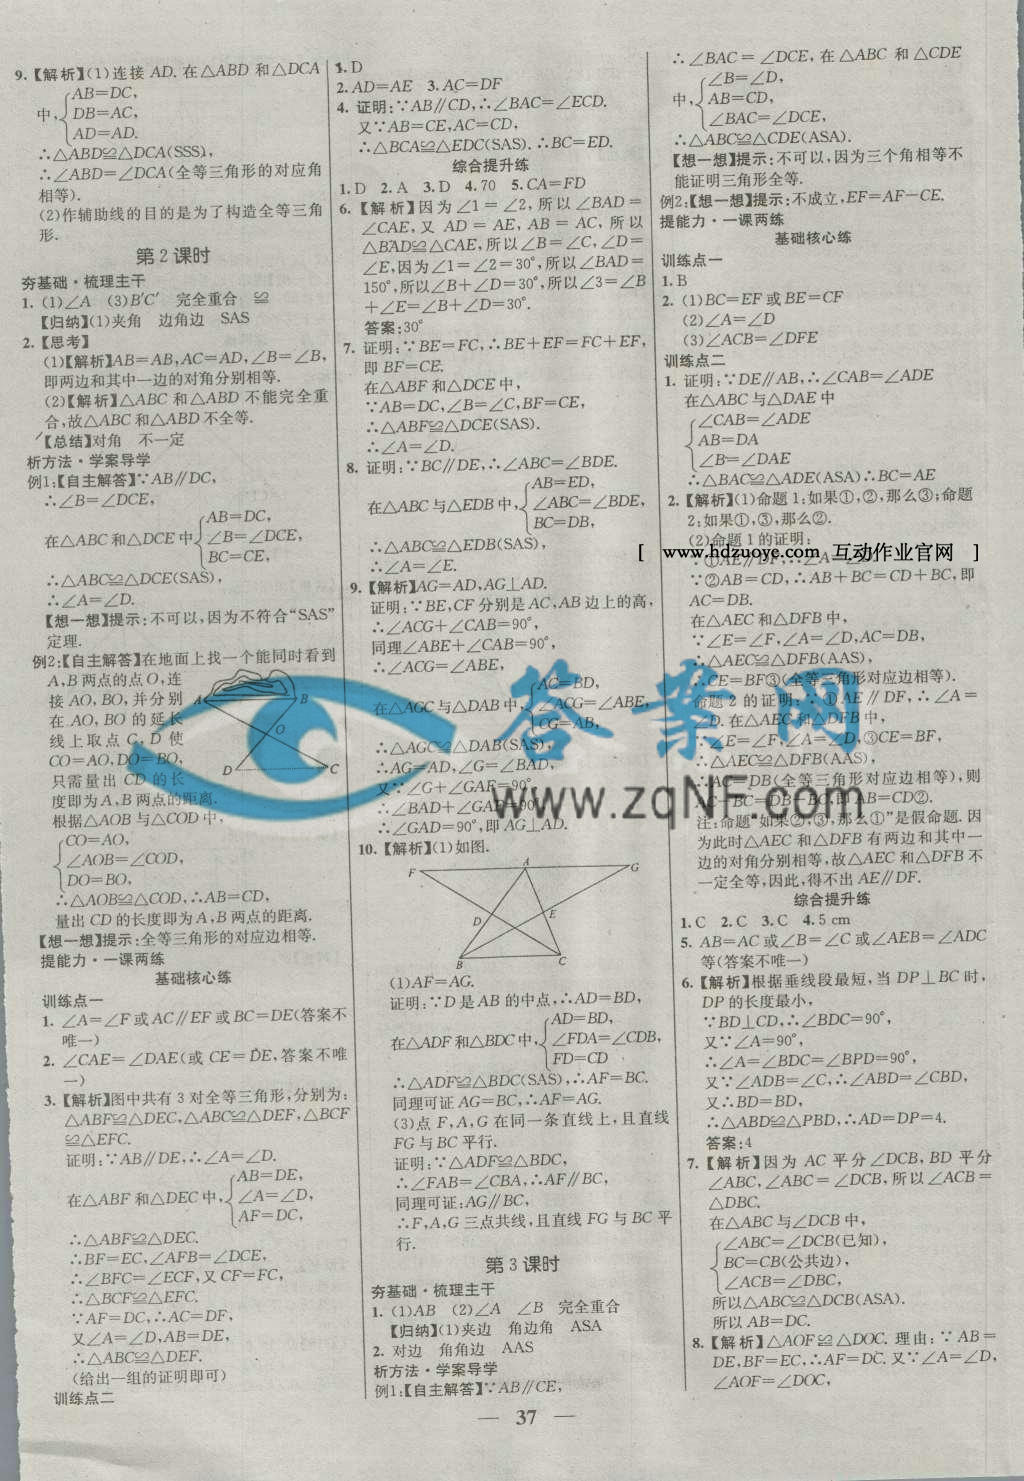 9.【解析】(1)连接 AD. 在△ABD 和△DCA
中,
AB=DC,
DB=AC,
AD=AD.
∴△ABD≌△DCA(SSS).
∴∠ABD=∠DCA(全等三角形的对应角
相等).
(2)作辅助线的目的是为了构造全等三角
形.
第 2 课时
夯基础·梳理主干
1. (1)∠A (3)B′C′ 完全重合 ≌
【归纳】(1)夹角 边角边 SAS
2.【思考】
(1)【解析】AB=AB,AC=AD,∠B=∠B,
即两边和其中一边的对角分别相等.
(2)【解析】△ABC 和△ABD 不能完全重
合,故△ABC 和△ABD 不全等.
【总结】对角 不一定
析方法·学案导学
例1:【自主解答】∵AB∥DC,
∴∠B=∠DCE,
在△ABC 和△DCE 中
AB=DC,
∠B=∠DCE,
BC=CE,
∴△ABC≌△DCE(SAS).
∴∠A=∠D.
【想一想】提示:不可以,因为不符合“SAS”
定理.
例2:【自主解答】在地面上找一个能同时看到
A,B 两点的点 O,连
接 AO,BO,并分别
在 AO,BO 的延长
线上取点 C,D 使
CO=AO,DO=BO,
只需量出 CD 的长
度即为 A,B 两点的距离.
A
B
O
D
C
根据△AOB 与△COD 中,
CO=AO,
∠AOB=∠COD,
DO=BO,
∴△AOB≌△COD,∴AB=CD.
量出 CD 的长度即为 A,B 两点的距离.
【想一想】提示:全等三角形的对应边相等.
提能力·一课两练
基础核心练
训练点一
1. ∠A=∠F 或 AC∥EF 或 BC=DE(答案不
唯一)
2. ∠CAE=∠DAE(或 CE=DE,答案不唯
一)
3.【解析】图中共有 3 对全等三角形,分别为:
△ABF≌△DEC,△ABC≌△DEF,△BCF
≌△EFC.
证明:∵AB∥DE,∴∠A=∠D.
在△ABF 和△DEC 中,
AB=DE,
∠A=∠D,
AF=DC,
∴△ABF≌△DEC.
∴BF=EC,∠AFB=∠DCE,
∴∠BFC=∠ECF,又 CF=FC,
∴△BCF≌△EFC.
∵AF=DC,∴AC=DF,
又∠A=∠D,AB=DE,
∴△ABC≌△DEF.
(给出一组的证明即可)
训练点二
1. D
2. AD=AE 3. AC=DF
4. 证明:∵AB∥CD,∴∠BAC=∠ECD.
又∵AB=CE,AC=CD,
∴△BCA≌△EDC(SAS).∴BC=ED.
综合提升练
1. D 2. A 3. D 4. 70 5. CA=FD
6.【解析】因为∠1=∠2,所以∠BAD=
∠CAE,又 AD=AE,AB=AC,所以
△BAD≌△CAE,所以∠B=∠C,∠D=
∠E,因为∠1=∠2=30°,所以∠BAD=
150°,所以∠B+∠D=30°,所以∠3=∠B
+∠E=∠B+∠D=30°.
答案:30°
7. 证明:∵BE=FC,∴BE+EF=FC+EF,
即 BF=CE.
在△ABF 和△DCE 中,
∵AB=DC,∠B=∠C,BF=CE,
∴△ABF≌△DCE(SAS).
∴∠A=∠D.
8. 证明:∵BC∥DE,∴∠ABC=∠BDE.
在△ABC 与△EDB 中,
AB=ED,
∠ABC=∠BDE,
BC=DB,
∴△ABC≌△EDB(SAS).
∴∠A=∠E.
9.【解析】AG=AD,AG⊥AD.
证明:∵BE,CF 分别是 AC,AB 边上的高,
∴∠ACG+∠CAB=90°,
同理∠ABE+∠CAB=90°,
∴∠ACG=∠ABE,
在△AGC 与△DAB 中,
AC=BD,
∠ACG=∠ABE,
CG=AB,
∴△AGC≌△DAB(SAS),
∴AG=AD,∠G=∠BAD,
又∵∠G+∠GAF=90°,
∴∠BAD+∠GAF=90°,
∴∠GAD=90°,即 AG⊥AD.
10.【解析】(1)如图.
F
A
G
D
E
B
C
(1)AF=AG.
证明:∵D 是 AB 的中点,∴AD=BD,
在△ADF 和△BDC 中,
AD=BD,
∠FDA=∠CDB,
FD=CD
∴△ADF≌△BDC(SAS),∴AF=BC.
同理可证 AG=BC,∴AF=AG.
(3)点 F,A,G 在同一条直线上,且直线
FG 与 BC 平行.
证明:∵△ADF≌△BDC,
∴∠FAB=∠CBA,∴AF∥BC,
同理可证:AG∥BC,
∴F,A,G 三点共线,且直线 FG 与 BC 平
行.
第 3 课时
夯基础·梳理主干
1. (1)AB (2)∠A ∠B 完全重合
【归纳】(1)夹边 角边角 ASA
2. 对边 角角边 AAS
析方法·学案导学
例1:【自主解答】∵AB∥CE,
∴∠BAC=∠DCE,在△ABC 和△CDE
中,
∠B=∠D,
AB=CD,
∠BAC=∠DCE,
∴△ABC≌△CDE(ASA).
【想一想】提示:不可以,因为三个角相等不
能证明三角形全等.
例2:【想一想】提示:不成立,EF=AF-CE.
提能力·一课两练
基础核心练
训练点一
1. B
2. (1)BC=EF 或 BE=CF
(2)∠A=∠D
(3)∠ACB=∠DFE
训练点二
1. 证明:∵DE∥AB,∴∠CAB=∠ADE
在△ABC 与△DAE 中
∠CAB=∠ADE
AB=DA
∠B=∠DAE
∴△BAC≌△ADE(ASA)∴BC=AE
2.【解析】(1)命题 1:如果①,②,那么③;命题
2:如果①,③,那么②.
(2)命题 1 的证明:
[ www.hdzuoye.com 互动作业官网 ]
∵①AE∥DF,∴∠A=∠D
∵②AB=CD,∴AB+BC=CD+BC,即
AC=DB.
在△AEC 和△DFB 中,
∵∠E=∠F,∠A=∠D,AC=DB,
∴△AEC≌△DFB(AAS),
∴CE=BF③(全等三角形对应边相等).
命题 2 的证明:∵①AE∥DF,∴∠A=
∠D. 在△AEC 和△DFB 中,
∵∠E=∠F,∠A=∠D,③CE=BF,
∴△AEC≌△DFB(AAS),
∴AC=DB(全等三角形对应边相等),则
AC-BC=DB-BC,即 AB=CD②.
注:命题“如果②,③,那么①”是假命题.因
为此时△AEC 和△DFB 有两边和其中一
边的对角分别相等,故△AEC 和△DFB 不
一定全等,因此,得不出 AE∥DF.
综合提升练
1. C 2. C 3. C 4. 5 cm
5. AB=AC 或∠B=∠C 或∠AEB=∠ADC
等(答案不唯一)
6.【解析】根据垂线段最短,当 DP⊥BC 时,
DP 的长度最小,
∵BD⊥CD,∴∠BDC=90°,
又∵∠A=90°,
∴∠A=∠BDC=∠BPD=90°,
又∵∠ADB=∠C,∴∠ABD=∠CBD,
又∴BD=BD,
∴△ABD≌△PBD,∴AD=DP=4.
答案:4
7.【解析】因为 AC 平分∠DCB,BD 平分
∠ABC,∠ABC=∠DCB,所以∠ACB=
∠DBC.
在△ABC 与△DCB 中,
∠ABC=∠DCB(已知),
BC=CB(公共边),
∠ACB=∠DBC,
所以△ABC≌△DCB(ASA).
所以 AB=DC.
8.【解析】△AOF≌△DOC. 理由:∵AB=
DE,BF=EC,∴AF=DC. 又∵∠A=∠D,
∠AOF=∠DOC,
答案网
www.zqNF.com
— 37 —